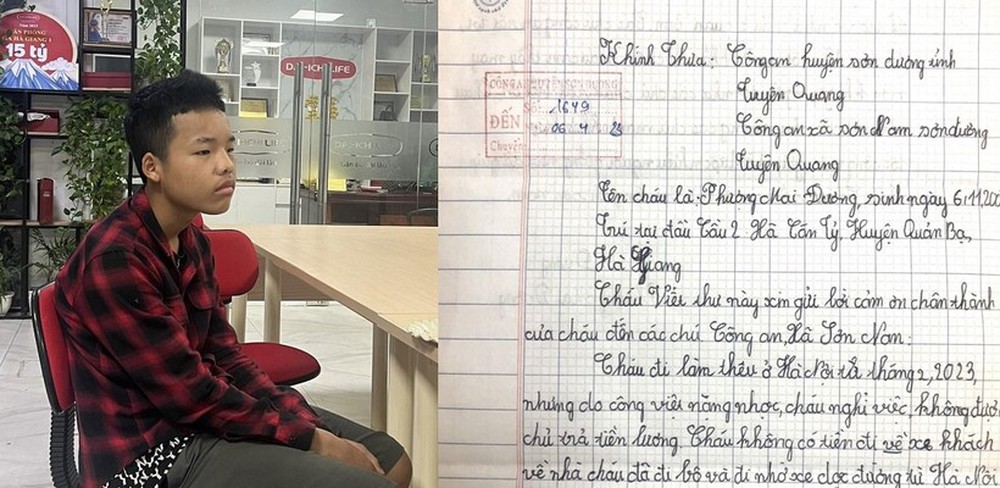 Năm 2023
VĂN PHÒNG
HÀ GIANG 1
15 tỷ
DAI-ICHI LIFE
CÔNG AN HUYỆN SƠN DƯƠNG
ĐẾN
Số: 1649
06 4 23
Chuyển:
Khính Thưa: Công an huyện sơn dương tỉnh
Tuyên Quang
Công an xã sơn Nam sơn dương
Tuyên Quang
Tên cháu là: Phượng Mai Dương, sinh ngày 6.11.200
Trú tại đầu Cầu 2 Hã Cán Tỷ, Huyện Quản Bạ,
Hà Giang
Cháu Viết thư này xin gửi lời cảm ơn chân thành
của cháu đến các chú Công an, Xã Sơn Nam:
Cháu đi làm thêu ở Hà Nội từ tháng 2, 2023,
nhưng do công việc nặng nhọc, cháu nghỉ việc, không đượ
chủ trả tiền lương. Cháu không có tiền đi về xe khách
về nhà cháu đã đi bộ và đi nhờ xe dọc đường từ Hà Nội